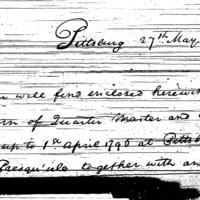 Pittsburg 27th May
will find enclosed herewith
of Quarter Master and
up to 1st April 1796 at Pittsb
Presqu'isle together with an